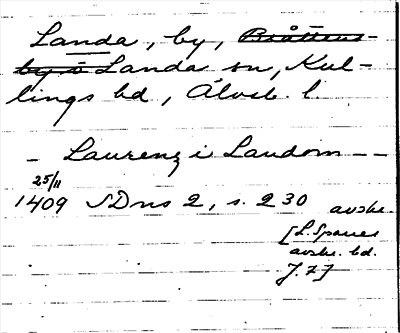 Landa, by, Bråttens-
by i Landa sn, Kul-
lings hd, Älvsb. l.
- Laurenz i Landom --
25/11
1409 SDns 2, s. 230 avskr.
[L. Sparres
avskr. bd.
J. 2]